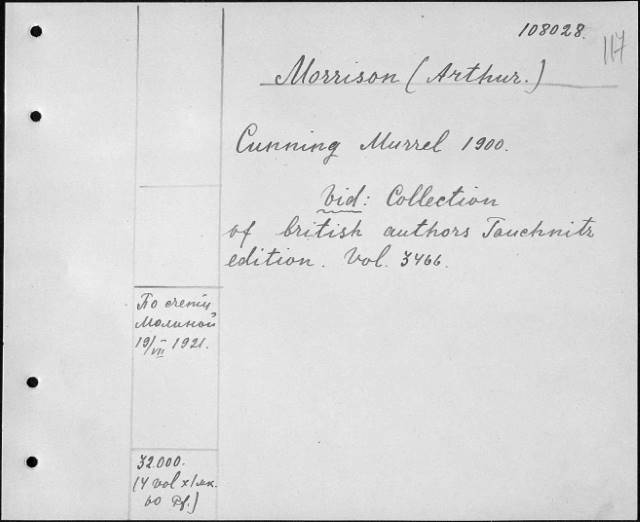 108028.
117
Morrison (Arthur.)
Cunning Murrel 1900.
Vid: Collection
of british authors Tauchnitz
edition. Vol. 3466.
По счету
Молиной
19/VII 1921.
32.000.
(4 vol x 1 мк.
60 Pf.)